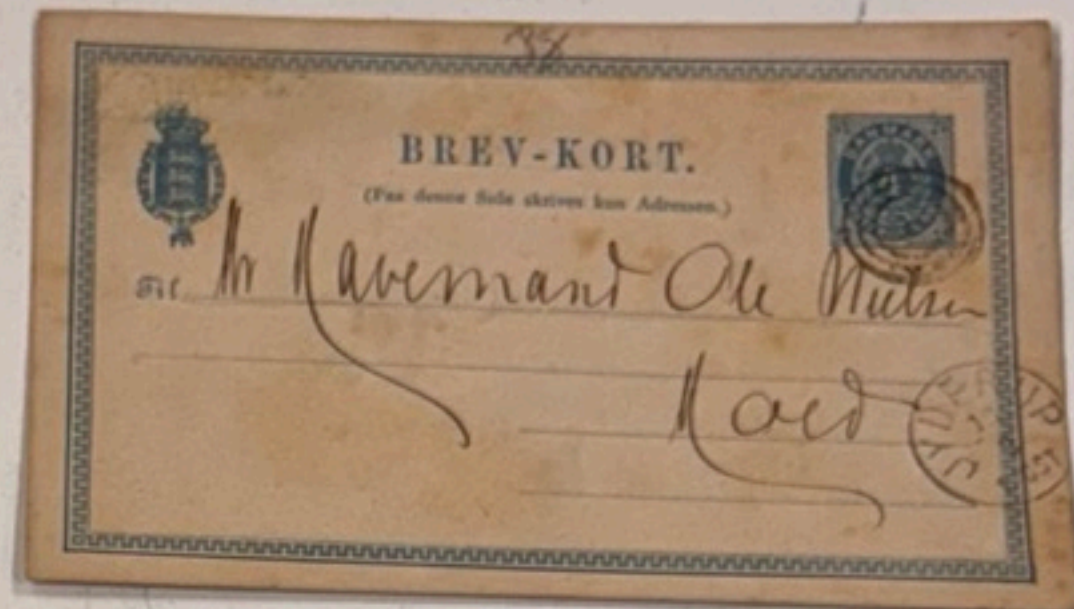 38
BREV-KORT.
(Paa denne Side skrives kun Adressen.)
DANMARK
Til Hr Havemand Ole Nielsen
JYDERUP